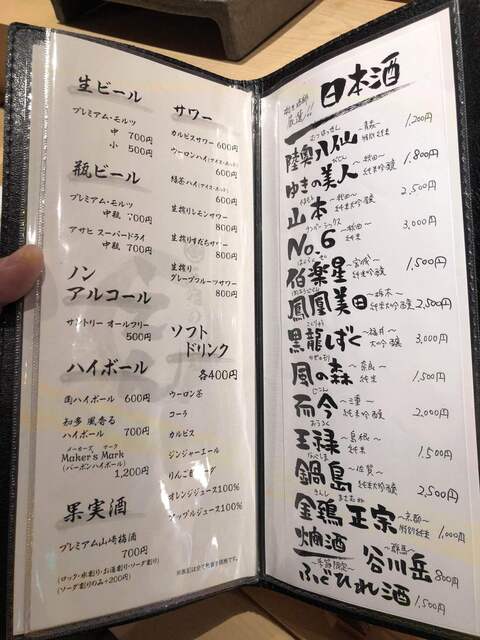 生ビール
プレミアム・モルツ
中 700円
小 500円
瓶ビール
プレミアム・モルツ
中瓶 700円
アサヒ スーパードライ
中瓶 700円
ノン
アルコール
サントリー オールフリー
500円
ハイボール
角ハイボール 600円
知多 風香る
ハイボール 700円
メーカーズ マーク
Maker's Mark
(バーボンハイボール)
1,200円
果実酒
プレミアム山崎梅酒
700円
(ロック・水割り・お湯割り・ソーダ割り)
(ソーダ割りのみ+200円)
サワー
カルピスサワー 600円
ウーロンハイ(アイス・ホット)
600円
緑茶ハイ(アイス・ホット)
600円
生搾りレモンサワー
800円
生搾りすだちサワー
800円
生搾り
グレープフルーツサワー
800円
ソフト
ドリンク
各400円
ウーロン茶
コーラ
カルピス
ジンジャーエール
りんごソーダ
オレンジジュース100%
アップルジュース100%
※表記は全て税抜き価格です。
日本酒
厳選!!
むつはっせん
陸奥八仙 〜青森〜 特別純米 1,200円
ゆきの美人 〜秋田〜 純米吟醸 1,800円
山本 〜秋田〜 純米大吟醸 2,500円
ナンバーシックス
No.6 〜秋田〜 純米 3,000円
はくらくせい
伯楽星 〜宮城〜 純米吟醸 1,500円
鳳凰美田 〜栃木〜 純米大吟醸 2,500円
こくりゅう
黒龍しずく 〜福井〜 大吟醸 3,000円
かぜのもり
風の森 〜奈良〜 純米 1,500円
じこん
而今 〜三重〜 純米吟醸 2,000円
おうろく
王禄 〜島根〜 純米 1,500円
なべしま
鍋島 〜佐賀〜 純米大吟醸 2,500円
きんし まさむね
金鵄正宗 〜京都〜 特別純米 1,000円
燗酒 〜群馬〜 谷川岳 800円
〜季節限定〜
ふぐひれ酒 1,500円